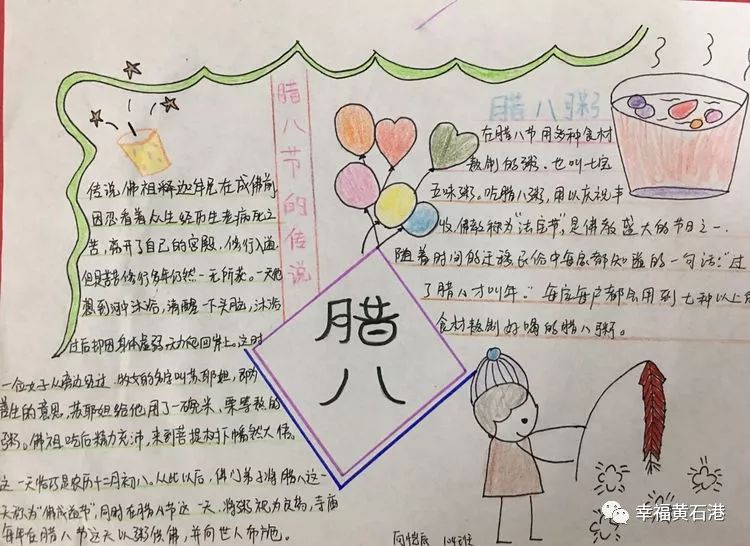 腊八节的传说
传说佛祖释迦牟尼在成佛前
因忍着着众生经历生老病死之
苦，离开了自己的宫殿，修行入道
但苦苦修行多年仍然一无所获。一天他
想到河中沐浴，清醒一下头脑，沐浴
过后却因身体虚弱无力爬回岸上。这时
一位女子从旁边路过，牧女的名字叫苏耶妲，即为
善生的意思，苏耶妲给他用了一碗米、栗等熬的
粥。佛祖吃后精力充沛，来到菩提树下幡然大悟。
这一天恰巧是农历十二月初八。从此以后，佛门弟子将腊八这一
天称为“佛成道节”，同时在腊八节这一天，将粥视为良药，寺庙
每年在腊八节这天以粥供佛，并向世人布施。
腊八
腊八粥
在腊八节用多种食材
熬制的粥，也叫七宝
五味粥。吃腊八粥，用以庆祝丰
收，佛教称为“法宝节”，是佛教盛大的节日之一。
随着时间的迁移民俗中每家都知道的一句话：“过
了腊八才叫年。”每家每户都会用到七种以上的
食材熬制好喝的腊八粥。
班
幸福黄石港